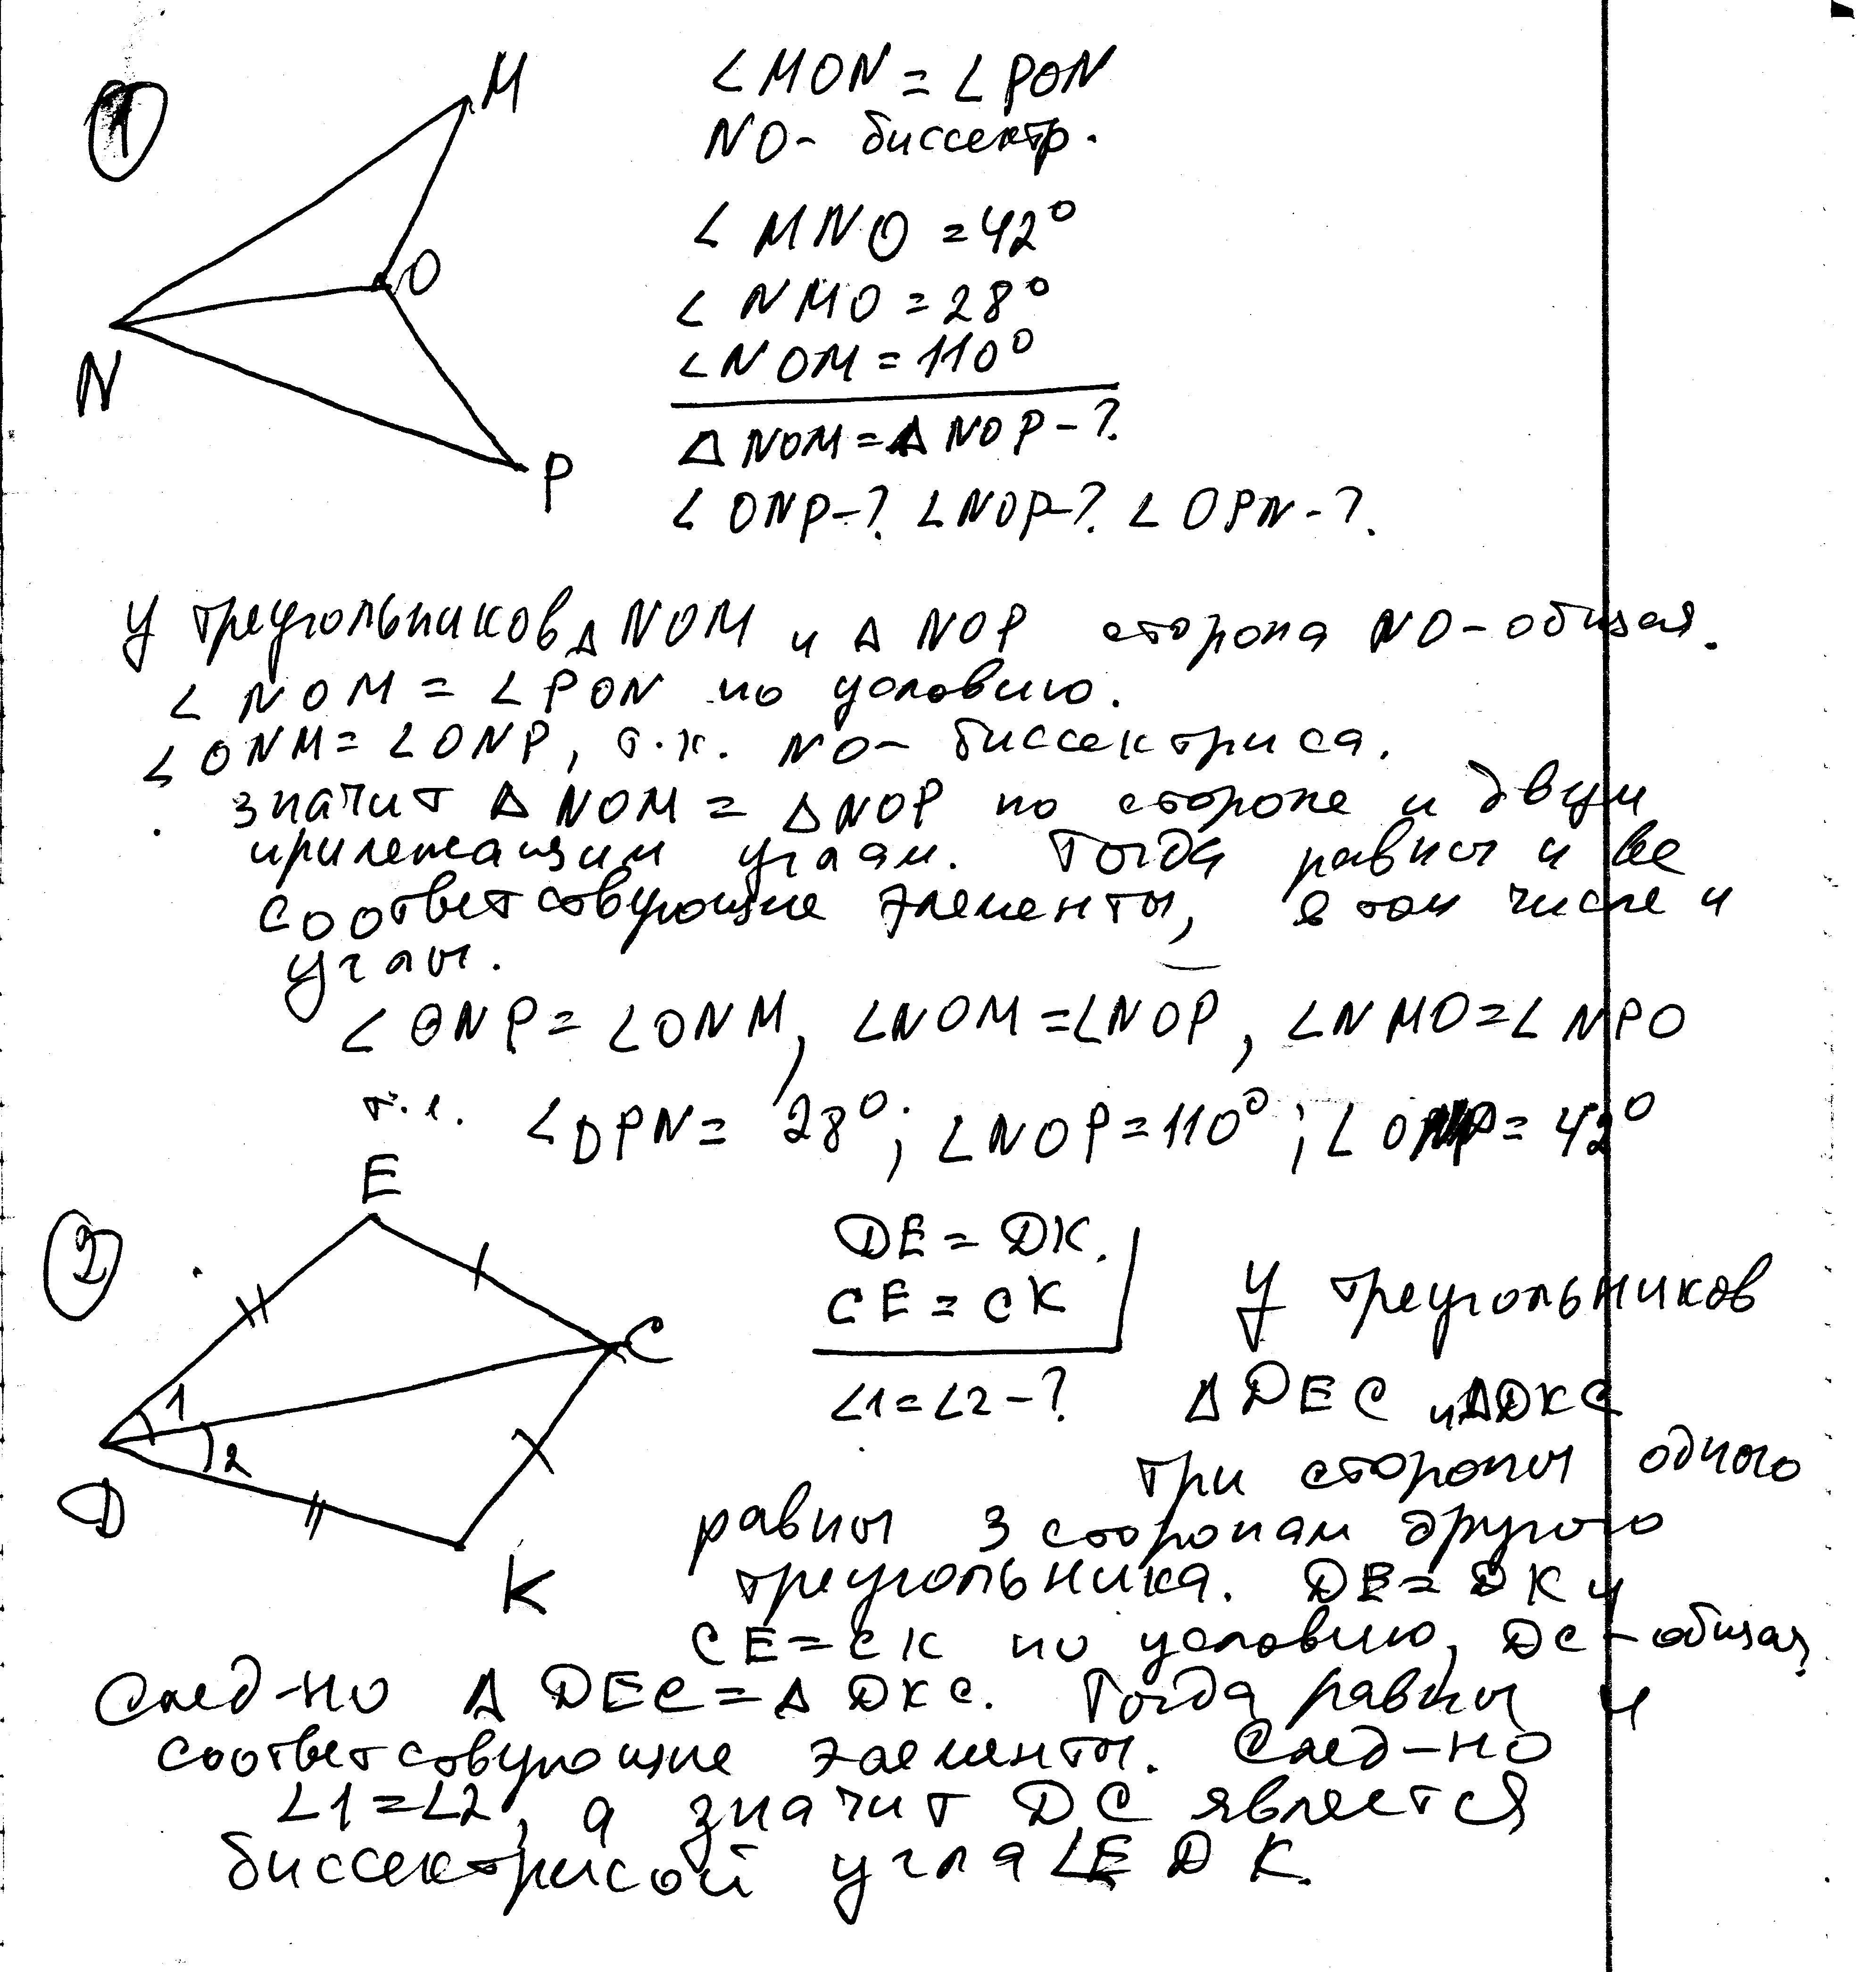 1
M
O
N
P
∠MON = ∠PON
NO - биссектр.
∠MNO = 42°
∠NMO = 28°
∠NOM = 110°
△NOM = △NOP - ?
∠ONP - ? ∠NOP - ? ∠OPN - ?
У треугольников △NOM и △NOP сторона NO - общая.
∠NOM = ∠PON по условию.
∠ONM = ∠ONP, т.к. NO - биссектриса.
значит △NOM = △NOP по стороне и двум
прилежащим углам. Тогда равны и все
соответствующие элементы, в том числе и
углы.
∠ONP = ∠ONM, ∠NOM = ∠NOP, ∠NMO = ∠NPO
т.е. ∠OPN = 28°; ∠NOP = 110°; ∠ONP = 42°
2
E
C
1
2
D
K
DE = DK.
CE = CK
∠1 = ∠2 - ?
У треугольников
△DEC и △DKC
три стороны одного
равны 3 сторонам другого
треугольника. DE = DK и
CE = CK по условию, DC - общая,
След-но △DEC = △DKC. Тогда равны и
соответсвующие элементы. След-но
∠1 = ∠2, а значит DC является
биссектрисой угла ∠EDK.